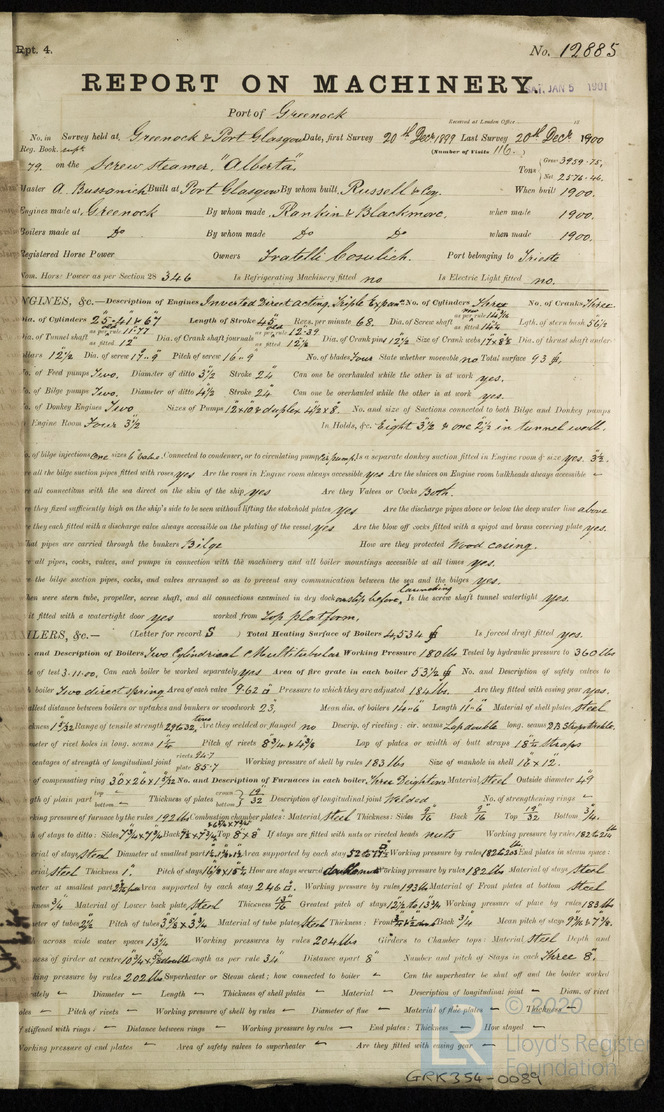 Rpt. 4.
No. 12885
REPORT ON MACHINERY.
SAT. JAN 5 1901
Port of Greenock
Received at London Office
No. in Survey held at Greenock & Port Glasgow Date, first Survey 20th Decr 1899 Last Survey 20th Decr 1900
Reg. Book.
(Number of Visits 116.)
79. on the Screw steamer "Alberta"
Tons Gross 3959.75.
Net 2576.46.
Master A. Bussanich Built at Port Glasgow By whom built Russell & Coy. When built 1900.
Engines made at Greenock By whom made Rankin & Blackmore. when made 1900.
Boilers made at Do By whom made Do Do when made 1900.
Registered Horse Power Owners Fratelli Cosulich. Port belonging to Trieste
Nom. Horse Power as per Section 28 346 Is Refrigerating Machinery fitted no Is Electric Light fitted no.
ENGINES, &c.—Description of Engines Inverted Direct acting, Triple Expan. No. of Cylinders Three No. of Cranks Three
Dia. of Cylinders 25"-41" & 67" Length of Stroke 45" Revs. per minute 68. Dia. of Screw shaft as per rule as fitted Lgth. of stern bush 56½
Dia. of Tunnel shaft as per rule 11.77 as fitted 12" Dia. of Crank shaft journals as per rule 12.39 as fitted 12½ Dia. of Crank pins 12½ Size of Crank webs Dia. of thrust shaft under
collars 12½ Dia. of screw 17-9 Pitch of screw 16-9 No. of blades Four State whether moveable no Total surface 93
No. of Feed pumps Two. Diameter of ditto 3½ Stroke 24" Can one be overhauled while the other is at work yes.
No. of Bilge pumps Two. Diameter of ditto 4½ Stroke 24" Can one be overhauled while the other is at work yes.
No. of Donkey Engines Two Sizes of Pumps 12x10 & duplex 4½x8. No. and size of Suctions connected to both Bilge and Donkey pumps
In Engine Room Four 3½ In Holds, &c. Eight 3½ & one 2½ in tunnel well.
No. of bilge injections one sizes 6" Connected to condenser, or to circulating pump Is a separate donkey suction fitted in Engine room & size yes. 3½.
Are all the bilge suction pipes fitted with roses yes Are the roses in Engine room always accessible yes Are the sluices on Engine room bulkheads always accessible –
Are all connections with the sea direct on the skin of the ship yes Are they Valves or Cocks Both.
Are they fixed sufficiently high on the ship's side to be seen without lifting the stokehold plates yes Are the discharge pipes above or below the deep water line above
Are they each fitted with a discharge valve always accessible on the plating of the vessel yes Are the blow off cocks fitted with a spigot and brass covering plate yes.
What pipes are carried through the bunkers Bilge How are they protected Wood casing.
Are all pipes, cocks, valves, and pumps in connection with the machinery and all boiler mountings accessible at all times yes.
Are the bilge suction pipes, cocks, and valves arranged so as to prevent any communication between the sea and the bilges yes.
When were stern tube, propeller, screw shaft, and all connections examined in dry dock on slip before launching Is the screw shaft tunnel watertight yes.
Is it fitted with a watertight door yes worked from Top platform.
BOILERS, &c.— (Letter for record S) Total Heating Surface of Boilers 4,534 Is forced draft fitted yes.
No. and Description of Boilers Two Cylindrical Multitubular Working Pressure 180 lbs Tested by hydraulic pressure to 360 lbs
Date of test 3.11.00. Can each boiler be worked separately yes Area of fire grate in each boiler 53½ No. and Description of safety valves to
each boiler Two direct spring Area of each valve 9.62 Pressure to which they are adjusted 184 lbs. Are they fitted with easing gear yes.
Smallest distance between boilers or uptakes and bunkers or woodwork 23. Mean dia. of boilers 14-6 Length 11-6 Material of shell plates Steel
Thickness Range of tensile strength 29 to 32 tons Are they welded or flanged no Descrip. of riveting: cir. seams Lap double long. seams
Diameter of rivet holes in long. seams Pitch of rivets Lap of plates or width of butt straps
Percentages of strength of longitudinal joint rivets 94.7 plate 85.7 Working pressure of shell by rules 183 lbs Size of manhole in shell 16" x 12.
Size of compensating ring No. and Description of Furnaces in each boiler Three Deightons Material Steel Outside diameter 49
Length of plain part top – bottom – Thickness of plates crown bottom 19/32 Description of longitudinal joint Welded No. of strengthening rings –
Working pressure of furnace by the rules 192 lbs Combustion chamber plates: Material Steel Thickness: Sides 9/16 Back 9/16 Top 19/32 Bottom ¾.
Pitch of stays to ditto: Sides Back Top 8 x 8 If stays are fitted with nuts or riveted heads nuts Working pressure by rules
Material of stays Steel Diameter at smallest part Area supported by each stay Working pressure by rules End plates in steam space:
Material Steel Thickness 1" Pitch of stays How are stays secured Working pressure by rules 182 lbs Material of stays Steel
Diameter at smallest part Area supported by each stay 246 Working pressure by rules 193 lbs Material of Front plates at bottom Steel
Thickness ¾ Material of Lower back plate Steel Thickness Greatest pitch of stays Working pressure of plate by rules 183 lbs
Diameter of tubes 2½ Pitch of tubes Material of tube plates Steel Thickness: Front Back ¾ Mean pitch of stays
Pitch across wide water spaces 13¼ Working pressures by rules 204 lbs Girders to Chamber tops: Material Steel Depth and
thickness of girder at centre Length as per rule 34" Distance apart 8" Number and pitch of Stays in each Three 8.
Working pressure by rules 202 lbs Superheater or Steam chest; how connected to boiler – Can the superheater be shut off and the boiler worked
separately – Diameter – Length – Thickness of shell plates – Material – Description of longitudinal joint – Diam. of rivet
holes – Pitch of rivets – Working pressure of shell by rules – Diameter of flue – Material of flue plates – Thickness –
If stiffened with rings – Distance between rings – Working pressure by rules – End plates: Thickness – How stayed –
Working pressure of end plates – Area of safety valves to superheater – Are they fitted with easing gear –
© 2020
Lloyd's Register
Foundation
LR
GRK354-0089